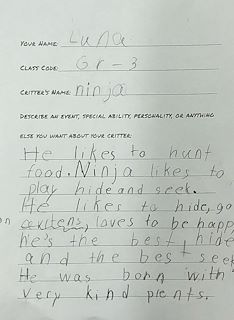 YOUR NAME: Luna
CLASS CODE: Gr-3
CRITTER'S NAME: ninja
DESCRIBE AN EVENT, SPECIAL ABILITY, PERSONALITY, OR ANYTHING
ELSE YOU WANT ABOUT YOUR CRITTER:
He likes to hunt
food. Ninja likes to
play hide and seek.
He likes to hide, go
on loves to be happy
he's the best hide
and the best seek
He was born with
very kind